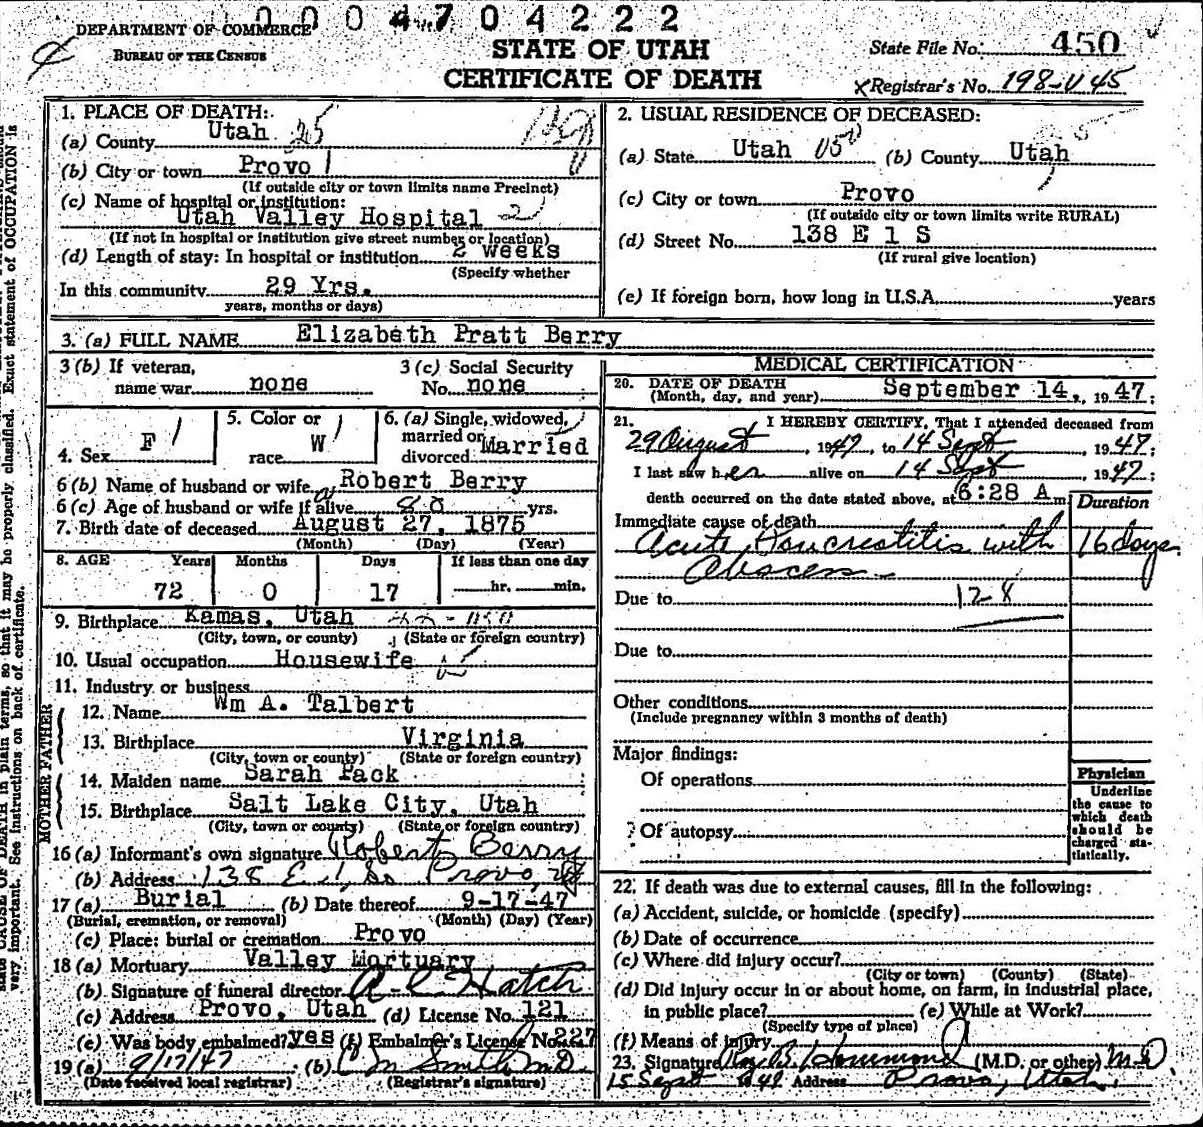 0004704222
DEPARTMENT OF COMMERCE
BUREAU OF THE CENSUS
STATE OF UTAH
CERTIFICATE OF DEATH
State File No. 450
Registrar's No. 198-V 45
1. PLACE OF DEATH:
(a) County Utah 25
(b) City or town Provo 1
(If outside city or town limits name Precinct)
(c) Name of hospital or institution:
Utah Valley Hospital 2
(If not in hospital or institution give street number or location)
(d) Length of stay: In hospital or institution 2 weeks
(Specify whether
In this community 29 Yrs.
years, months or days)
2. USUAL RESIDENCE OF DECEASED:
(a) State Utah (b) County Utah
(c) City or town Provo
(If outside city or town limits write RURAL)
(d) Street No. 138 E 1 S
(If rural give location)
(e) If foreign born, how long in U.S.A. years
3. (a) FULL NAME Elizabeth Pratt Berry
3 (b) If veteran, name war none
3 (c) Social Security No. none
4. Sex F
5. Color or race W
6. (a) Single, widowed, married or divorced Married
6 (b) Name of husband or wife Robert Berry
6 (c) Age of husband or wife if alive 80 yrs.
7. Birth date of deceased August 27, 1875
(Month) (Day) (Year)
8. AGE Years Months Days If less than one day
72 0 17 hr. min.
9. Birthplace Kamas, Utah
(City, town, or county) (State or foreign country)
10. Usual occupation Housewife
11. Industry or business
FATHER
12. Name Wm A. Talbert
13. Birthplace Virginia
(City, town or county) (State or foreign country)
MOTHER
14. Maiden name Sarah Pack
15. Birthplace Salt Lake City, Utah
(City, town or county) (State or foreign country)
16 (a) Informant's own signature Robert Berry
(b) Address 138 E. 1 So Provo, Ut
17 (a) Burial (b) Date thereof 9-17-47
(Burial, cremation, or removal) (Month) (Day) (Year)
(c) Place: burial or cremation Provo
18 (a) Mortuary Valley Mortuary
(b) Signature of funeral director A. L. Hatch
(c) Address Provo, Utah (d) License No. 121
(e) Was body embalmed? yes (f) Embalmer's License No. 227
19 (a) 9/17/47 (b) C M Smith M.D.
(Date received local registrar) (Registrar's signature)
MEDICAL CERTIFICATION
20. DATE OF DEATH
(Month, day, and year) September 14, 1947;
21. I HEREBY CERTIFY, That I attended deceased from
29 August, 1947, to 14 Sept, 1947;
I last saw her alive on 14 Sept 1947;
death occurred on the date stated above, at 6:28 A m.
Duration
Immediate cause of death
Acute Pancreatitis with 16 days
Abscess
Due to 128
Due to
Other conditions
(Include pregnancy within 3 months of death)
Major findings:
Of operations
Of autopsy
Physician
Underline
the cause to
which death
should be
charged sta-
tistically.
22. If death was due to external causes, fill in the following:
(a) Accident, suicide, or homicide (specify)
(b) Date of occurrence
(c) Where did injury occur?
(City or town) (County) (State)
(d) Did injury occur in or about home, on farm, in industrial place,
in public place? (e) While at Work?
(Specify type of place)
(f) Means of injury
23. Signature Roy B. Hammond (M.D. or other) M.D
15 Sept 1947 Address Provo, Utah.
properly classified. Exact statement of OCCUPATION is
CAUSE OF DEATH in plain terms, so that it may be
very important. See instructions on back of certificate.